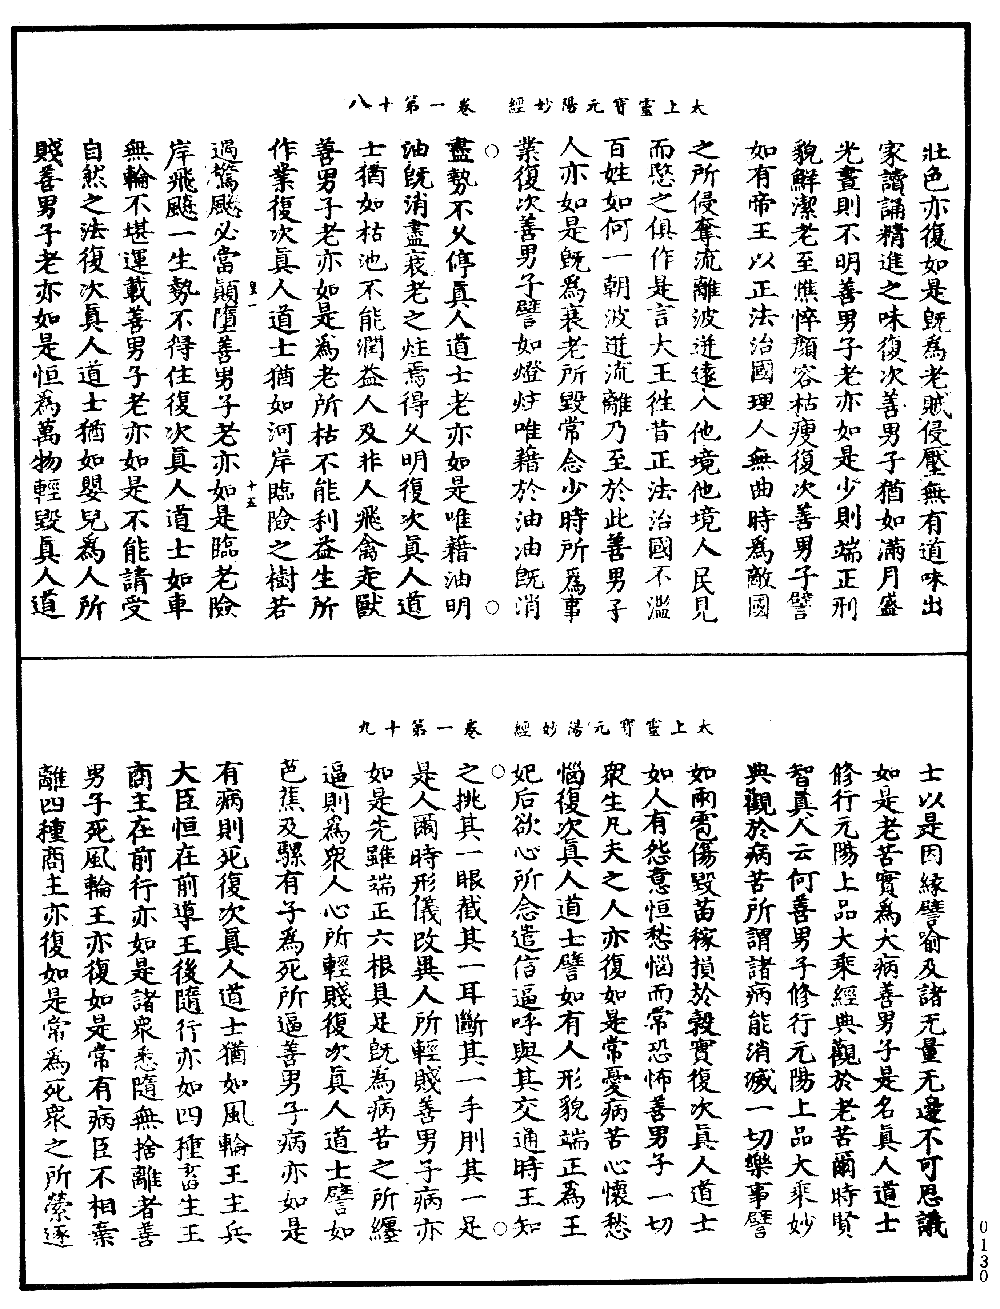 太上靈寶元陽妙經　卷一第十八
壯色亦復如是旣為老賊侵壓無有道味出
家讀誦精進之味復次善男子猶如滿月盛
光晝則不明善男子老亦如是少則端正形
貌鮮潔老至憔悴顏容枯瘦復次善男子譬
如有帝王以正法治國理人無曲時為敵國
之所侵奪流離波迸遠入他境他境人民見
而愍之俱作是言大王往昔正法治國不濫
百姓如何一朝波迸流離乃至於此善男子
人亦如是旣為衰老所毀常念少時所為事
業復次善男子譬如燈炷唯藉於油油旣消
盡勢不久停真人道士老亦如是唯藉油明
油旣消盡衰老之炷焉得久明復次真人道
士猶如枯池不能潤益人及非人飛禽走獸
善男子老亦如是為老所枯不能利益生所
作業復次真人道士猶如河岸臨險之樹若
遇驚飈必當顛墮善男子老亦如是臨老險
岸飛颷一生勢不得住復次真人道士如車
無輪不堪運載善男子老亦如是不能請受
自然之法復次真人道士猶如嬰兒為人所
賤善男子老亦如是恒為萬物輕毀真人道
十五
太上靈寶元陽妙經　卷一第十九
士以是因緣譬喻及諸无量无邊不可思議
如是老苦實為大病善男子是名真人道士
修行元陽上品大乘經典觀於老苦爾時賢
智真人云何善男子修行元陽上品大乘妙
典觀於病苦所謂諸病能消滅一切樂事譬
如雨雹傷毀苗稼損於穀實復次真人道士
如人有怨意恒愁惱而常恐怖善男子一切
衆生凡夫之人亦復如是常憂病苦心懷愁
惱復次真人道士譬如有人形貌端正為王
妃后欲心所念遣信逼呼與其交通時王知
之挑其一眼截其一耳斷其一手刖其一足
是人爾時形儀改異人所輕賤善男子病亦
如是先雖端正六根具足旣為病苦之所纏
逼則為衆人心所輕賤復次真人道士譬如
芭蕉及騾有子為死所逼善男子病亦如是
有病則死復次真人道士猶如風輪王主兵
大臣恒在前導王後隨行亦如四種畜生王
商主在前行亦如是諸衆悉隨無捨離者善
男子死風輪王亦復如是常有病臣不相棄
離四種商主亦復如是常為死衆之所縈逐
0130